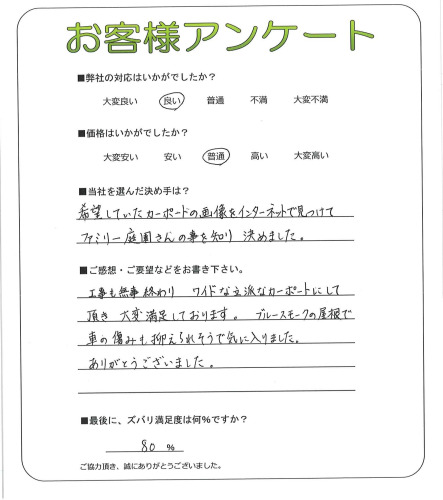 お客様アンケート
■弊社の対応はいかがでしたか？
大変良い 良い 普通 不満 大変不満
■価格はいかがでしたか？
大変安い 安い 普通 高い 大変高い
■当社を選んだ決め手は？
希望していたカーポートの画像をインターネットで見つけて
ファミリー庭園さんの事を知り 決めました。
■ご感想・ご要望などをお書き下さい。
工事も無事終わり ワイドな立派なカーポートにして
頂き 大変満足しております。 ブルースモークの屋根で
車の傷みも抑えられそうで気に入りました。
ありがとうございました。
■最後に、ズバリ満足度は何％ですか？
80 %
ご協力頂き、誠にありがとうございました。